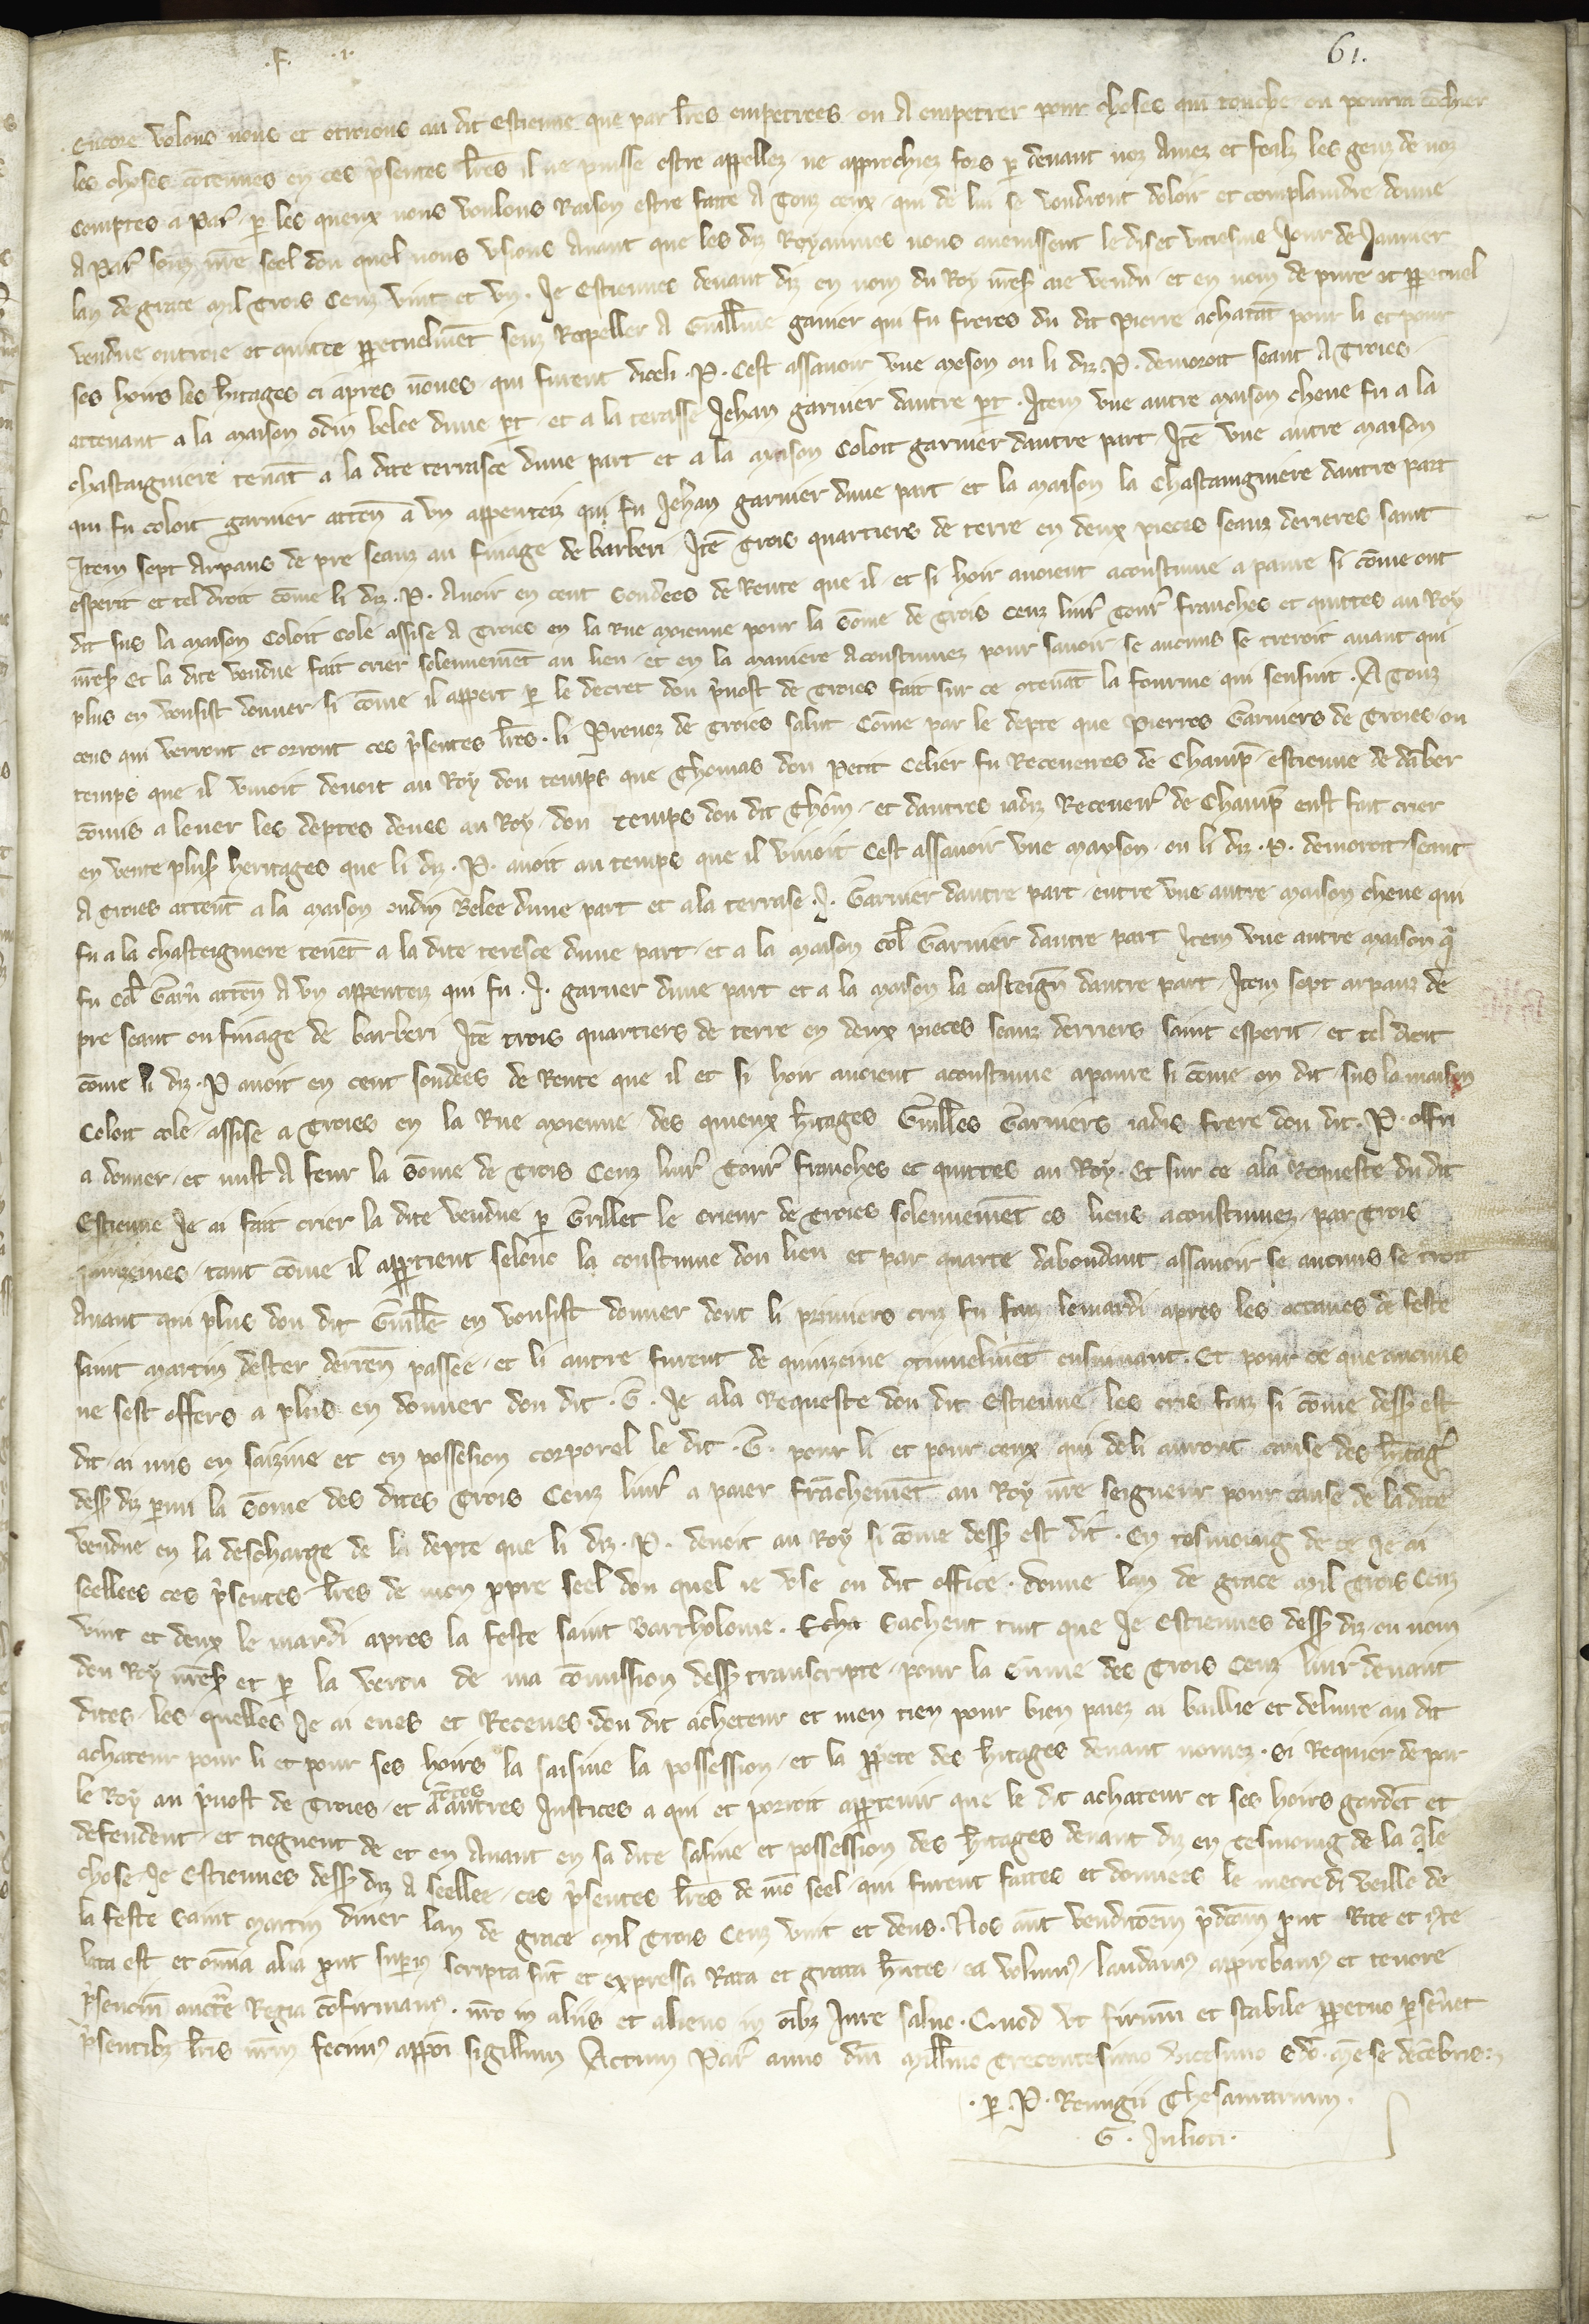 .F. .1.
61.
Encore volons nous et otroions au dit estienne que par l̃res empetrees ou A empetrer pour choses qui touche ou pourra tõchier
les choses cõtenues en ces p̃sentes l̃res il ne puisse estre appellez ne approchiez fors p̱ devant noz Amez et fealz les genz de noz
comptes a Par̃ p̱ les queux nous voulons Raison estre faite A Touz ceux qui de lui se voudront doloir et complaindre donne
A Par̃ souz nr̃e seel dou quel nous usions Avant que les diz Royaumes nous avenissent le diset vitiesme Jour de Janvier
lan de grace mil Trois Cenz vint et vn. Je Estiennes devant diz en nom du Roy nr̃eß aie vendu et en nom de pure et ꝑpetuel
vendue outroie et quitte ꝑpetuelmẽt senz Rapeller A Guill̃me garnier qui fu freres du dit Pierre achatãt pour li et pour
ses hoirs les h̃itages ci apres nõmes qui furent diceli .P. Cest assavoir vne meson ou li diz .P. demoroit seant A Troies
attenant a la maison odin belee dune p̱t et a la terasse Jehan garnier dautre p̱t . Item vne autre maison cheue fu a la
chastaigniere tenãt a la dite terrasce dune part et a la maison Coloit garnier dautre part Itẽ vne autre maison
qui fu coloit garnier attẽn a vn appenteiz qui fu Jeh̃an garnier dune part et la maison la Chastaingniere dautre part
Item sept Arpans de pre seanz au finage de barberi Itẽ Trois quartiers de terre en deux pieces seanz derieres saint
esperit et tel droit cõme li diz .P. Avoir en cent soudees de Rente que il et si hoir avoient acoustume a panre si cõme ont
dit sus la maison Coloit Cole assise A Troies en la Rue moienne pour la sõme de Trois Cenz liur̃ Tour̃ franches et quittes au Roy
nr̃eß Et la dite vendue fait crier solennemẽt au lieu et en la maniere Acoustumez pour savoir se aucuns se treroit avant qui
plus en vousist donner si cõme il appert p̱ le decret dou p̃vost de Troies fait sur ce ↄtenãt la fourme qui sensuit . A Touz
ceus qui verront et orront ces p̃sentes l̃res . li Prevoz de Troies salut . Cõme par le depte que Pierres Garniers de Troies ou
temps que il vivoit devoit au Roy dou temps que Thomas dou Petit Celier fu Receveres de Champ̃ estienne de dãber
cõmis a lever les deptes deues au Roy dou temps dou dit Thom̃ et dautres iadiz Receveur̃ de Champ̃ eust fait crier
en vente pluß heritages que li diz .P. avoit au temps que il vivoit Cest assavoir vne mayson ou li diz .P. demoroit seant
A Troies attent̃ a la maison oudin Belee dune part et a la terrase .J. Garnier dautre part entre vne autre maison cheue qui
fu a la chasteigniere tenẽt a la dite teresce dune part et a la maison Col̃ Garnier dautre part Item vne autre maison q̃
fu Col̃ Garñ attẽn A vn appenteiz qui fu .J. garnier dune part et a la maison la casteigñ dautre part . Item sept arpanz de
pre seant ou finage de barberi Itẽ trois quartiers de terre en deux pieces seanz derriers saint esperit et tel droit
cõme li diz .P avoit en cent soudees de Rente que il et si hoir avoient acoustume apanre si cõme on dit sus la maison
Coloit cole assise a Troies en la Rue moienne des quieux h̃itages Guill̃es Garniers iadis frere dou dit .P. offri
a donner et mist A feur la sõme de Trois Cenz liur̃ Tour̃ franches et quittes au Roy. Et sur ce ala Requeste du dit
Estienne Je ai fait crier la dite vendue p̱ Grillet le crieur de Troies solennemẽt es lieus acoustumez par Trois
quinzeines tant cõme il apꝑtient selonc la coustume dou lieu et par quarte dabondant assavoir se aucuns se troit
Avant qui plus dou dit Guill̃e en vousist donner dont li primiers criz fu faiz lemardi apres les octaves de feste
saint martin dester derreñ passee et li autre furent de quinzeine ↄtinuelmẽt ensuivant . Et pour ce que aucuns
ne sest offers a plus en donner dou dit .G. Je ala Requeste dou dit Estienne les cris faiz si cõme dess̃ est
dit ai mis en saizine et en possesion corporel le dit .G. pour li et pour ceux qui deli auront cause des h̃itag̃
dess̃ diz parmi la sõme des dites Trois Cenz liur̃ a paier frãchemẽt au Roy nr̃e seigneur pour cause de la dite
vendue en la descharge de la depte que li diz .P. devoit au Roy si cõme dess̃ est dit . En tesmoing de ce Je ai
seellees ces p̃sentes l̃res de mon ꝓpre seel dou quel ie vse ou dit office . donne lan de grace mil Trois Cenz
vint et deux le mardi apres la feste saint Bartholome . Sachent tuit que Je Estiennes dess̃ diz ou nom
dou Roy nr̃eß et p̱ la vertu de ma cõmission dess̃ transcripte pour la sõme des Trois Cenz liur̃ devant
dites les quelles Je ai eues et Receues dou dit acheteur et men tien pour bien paiez ai baillie et delivre au dit
achateur pour li et pour ses hoirs la saisine la possession et la ꝓpr̃ete des h̃itages devant nomez . Si Requier de par
le Roy au p̃vost de Troies et a toutes autres Justices a qui et porroit apꝑtenir que le dit achateur et ses hoirs gardẽt et
defendent et tiegnent de et en Avant en sa dite saisine et possession des h̃itages devant diz en Tesmoing de la q̃le
chose Je Estiennes dess̃ diz A seellee ces p̃sentes l̃res de mõ seel qui furent faites et donnees le mecredi veille de
la feste saint martin diuer lan de grace mil Trois Cenz vint et deus . Nos aũt venditoẽm p̃dcãm ꝓut Rite et iuste
lata est et om̃ia alia ꝓut supiꝰ scripta sũt et expressa Rata et grata h̃ntes ea volumꝰ laudamꝰ approbamꝰ et tenore
p̃senciũ auctẽ Regia cõfirmamꝰ . nr̃o in aliis et alieno in õibꝫ Jure salvo . Quod vt firmũ et stabile ꝑpetuo ꝑsev̾et
p̃sentibꝫ l̃ris nr̃m fecimꝰ appõi sigillum Actum Par̃ anno dñi mill̃imo Trecentesimo vicesimo scdo. mẽse decẽbris.
. p̱ .P. Remigii Thesaurarium .
G. Julioti .